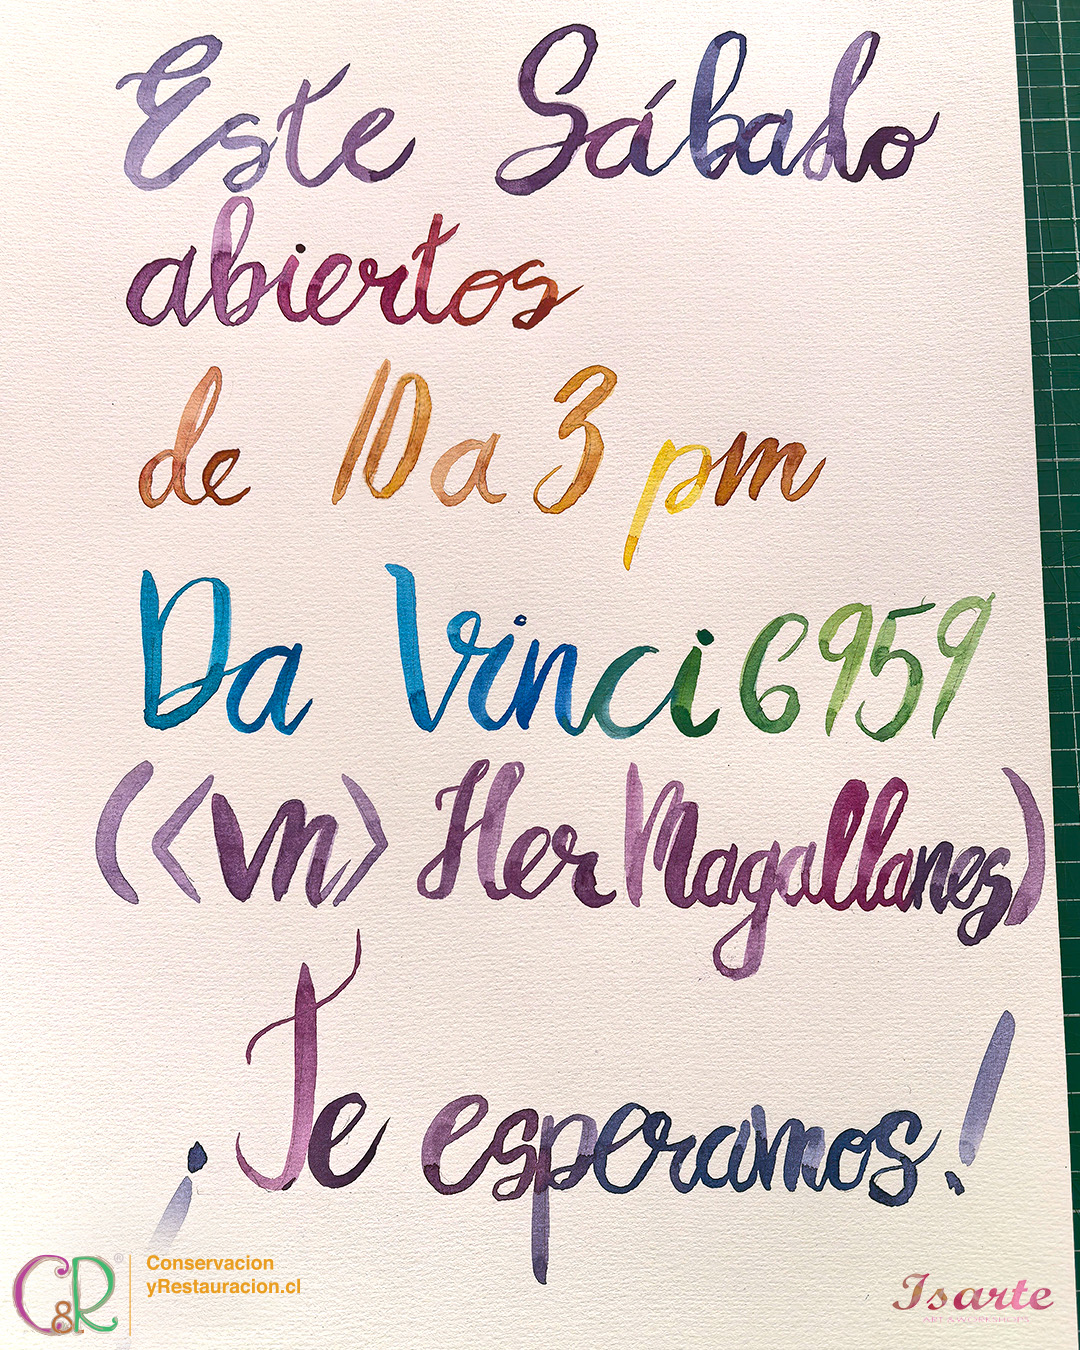 Este Sábado
abiertos
de 10 a 3 pm
Da Vinci 6959
(<vn> Her Magallanes)
¡Te esperamos!
C&R®
Conservacion
yRestauracion.cl
Isarte
ART & WORKSHOPS